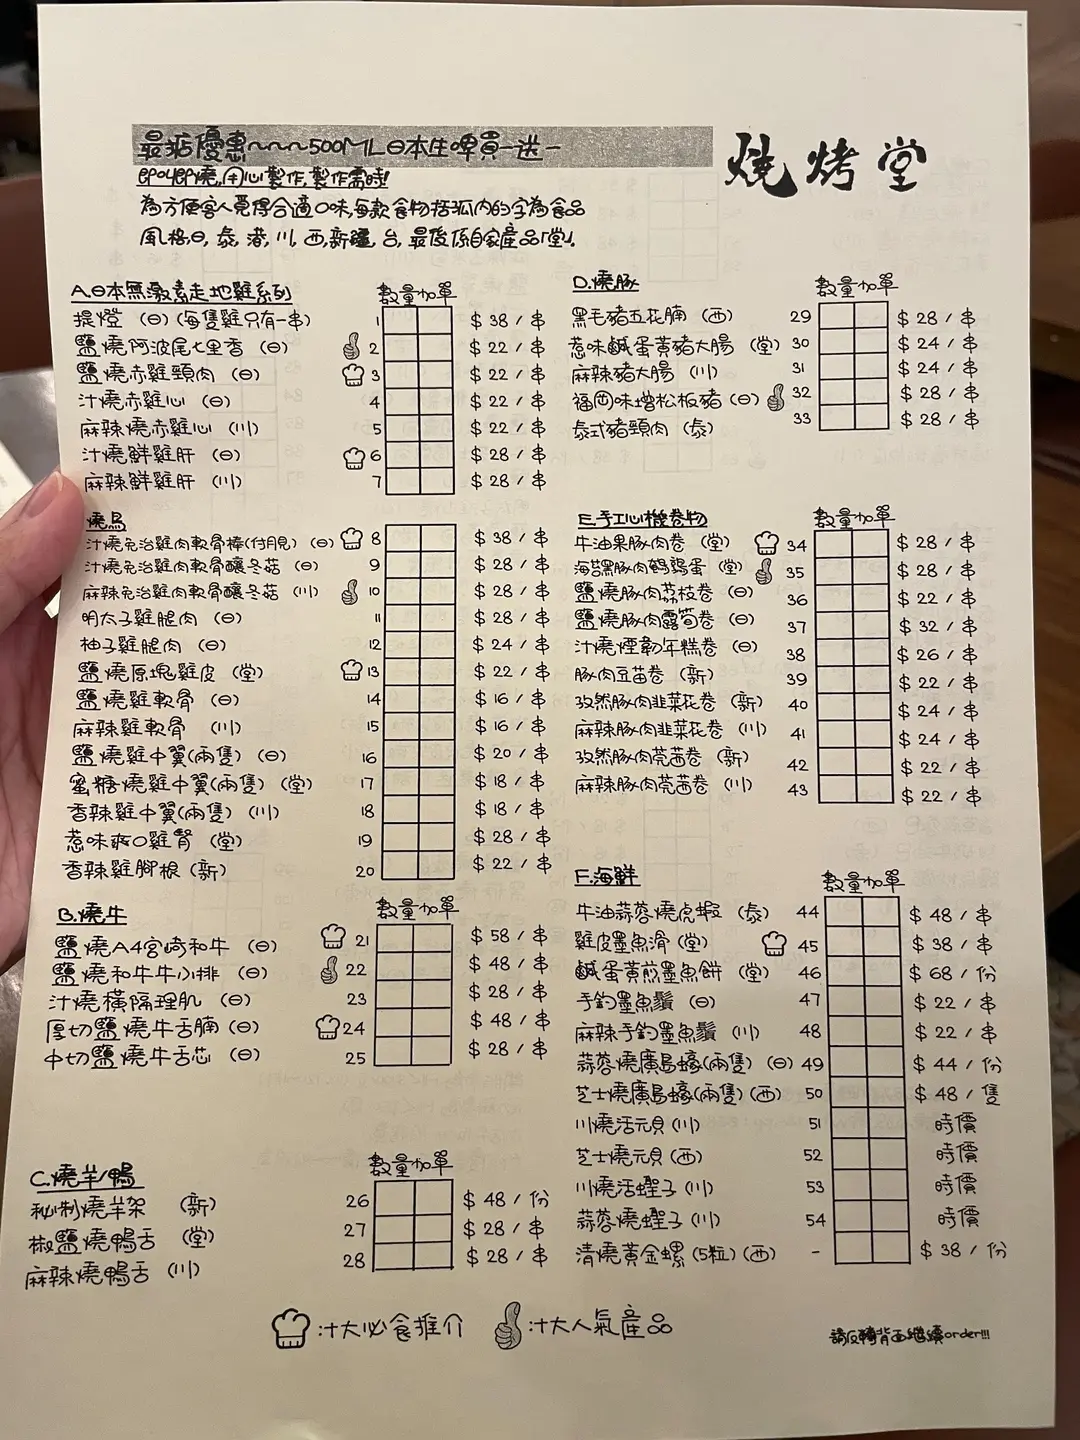 最抵優惠~~~500ML日本生啤買一送一
燒烤堂
即叫即燒,用心製作,製作需時!
為方便客人覓得合適口味,每款食物括弧內的字為食品
風格,日, 泰, 港, 川, 西, 新疆, 台, 最後係自家產品「堂」.
A.日本無激素走地雞系列 數量 加單
提燈 (日) (每隻雞只有一串) 1 $ 38 / 串
鹽燒阿波尾七里香 (日) 2 $ 22 / 串
鹽燒赤雞頸肉 (日) 3 $ 22 / 串
汁燒赤雞心 (日) 4 $ 22 / 串
麻辣燒赤雞心 (川) 5 $ 22 / 串
汁燒鮮雞肝 (日) 6 $ 28 / 串
麻辣鮮雞肝 (川) 7 $ 28 / 串
燒鳥
汁燒免治雞肉軟骨棒(付月見) (日) 8 $ 38 / 串
汁燒免治雞肉軟骨釀冬菇 (日) 9 $ 28 / 串
麻辣免治雞肉軟骨釀冬菇 (川) 10 $ 28 / 串
明太子雞腿肉 (日) 11 $ 28 / 串
柚子雞腿肉 (日) 12 $ 24 / 串
鹽燒原塊雞皮 (堂) 13 $ 22 / 串
鹽燒雞軟骨 (日) 14 $ 16 / 串
麻辣雞軟骨 (川) 15 $ 16 / 串
鹽燒雞中翼(兩隻) (日) 16 $ 20 / 串
蜜糖燒雞中翼(兩隻) (堂) 17 $ 18 / 串
香辣雞中翼(兩隻) (川) 18 $ 18 / 串
惹味爽口雞腎 (堂) 19 $ 28 / 串
香辣雞腳根 (新) 20 $ 22 / 串
B.燒牛 數量 加單
鹽燒A4宮崎和牛 (日) 21 $ 58 / 串
鹽燒和牛牛小排 (日) 22 $ 48 / 串
汁燒橫隔理肌 (日) 23 $ 28 / 串
厚切鹽燒牛舌腩 (日) 24 $ 48 / 串
中切鹽燒牛舌芯 (日) 25 $ 28 / 串
C.燒羊/鴨 數量 加單
秘制燒羊架 (新) 26 $ 48 / 份
椒鹽燒鴨舌 (堂) 27 $ 28 / 串
麻辣燒鴨舌 (川) 28 $ 28 / 串
D.燒豚 數量 加單
黑毛豬五花腩 (西) 29 $ 28 / 串
惹味鹹蛋黃豬大腸 (堂) 30 $ 24 / 串
麻辣豬大腸 (川) 31 $ 24 / 串
福岡味增松板豬 (日) 32 $ 28 / 串
泰式豬頸肉 (泰) 33 $ 28 / 串
E.手工心機卷物 數量 加單
牛油果豚肉卷 (堂) 34 $ 28 / 串
海苔黑豚肉鵪鶉蛋 (堂) 35 $ 28 / 串
鹽燒豚肉荔枝卷 (日) 36 $ 22 / 串
鹽燒豚肉露筍卷 (日) 37 $ 32 / 串
汁燒煙韌年糕卷 (日) 38 $ 26 / 串
豚肉豆苗卷 (新) 39 $ 22 / 串
孜然豚肉韭菜花卷 (新) 40 $ 24 / 串
麻辣豚肉韭菜花卷 (川) 41 $ 24 / 串
孜然豚肉芫茜卷 (新) 42 $ 22 / 串
麻辣豚肉芫茜卷 (川) 43 $ 22 / 串
F.海鮮 數量 加單
牛油蒜蓉燒虎蝦 (泰) 44 $ 48 / 串
雞皮墨魚滑 (堂) 45 $ 38 / 串
鹹蛋黃煎墨魚餅 (堂) 46 $ 68 / 份
手釣墨魚鬚 (日) 47 $ 22 / 串
麻辣手釣墨魚鬚 (川) 48 $ 22 / 串
蒜蓉燒廣島蠔(兩隻) (日) 49 $ 44 / 份
芝士燒廣島蠔(兩隻) (西) 50 $ 48 / 隻
川燒活元貝 (川) 51 時價
芝士燒元貝 (西) 52 時價
川燒活蟶子 (川) 53 時價
蒜蓉燒蟶子 (川) 54 時價
清燒黃金螺 (5粒) (西) - $ 38 / 份
:十大必食推介 :十大人氣產品
請反轉背面繼續order!!!